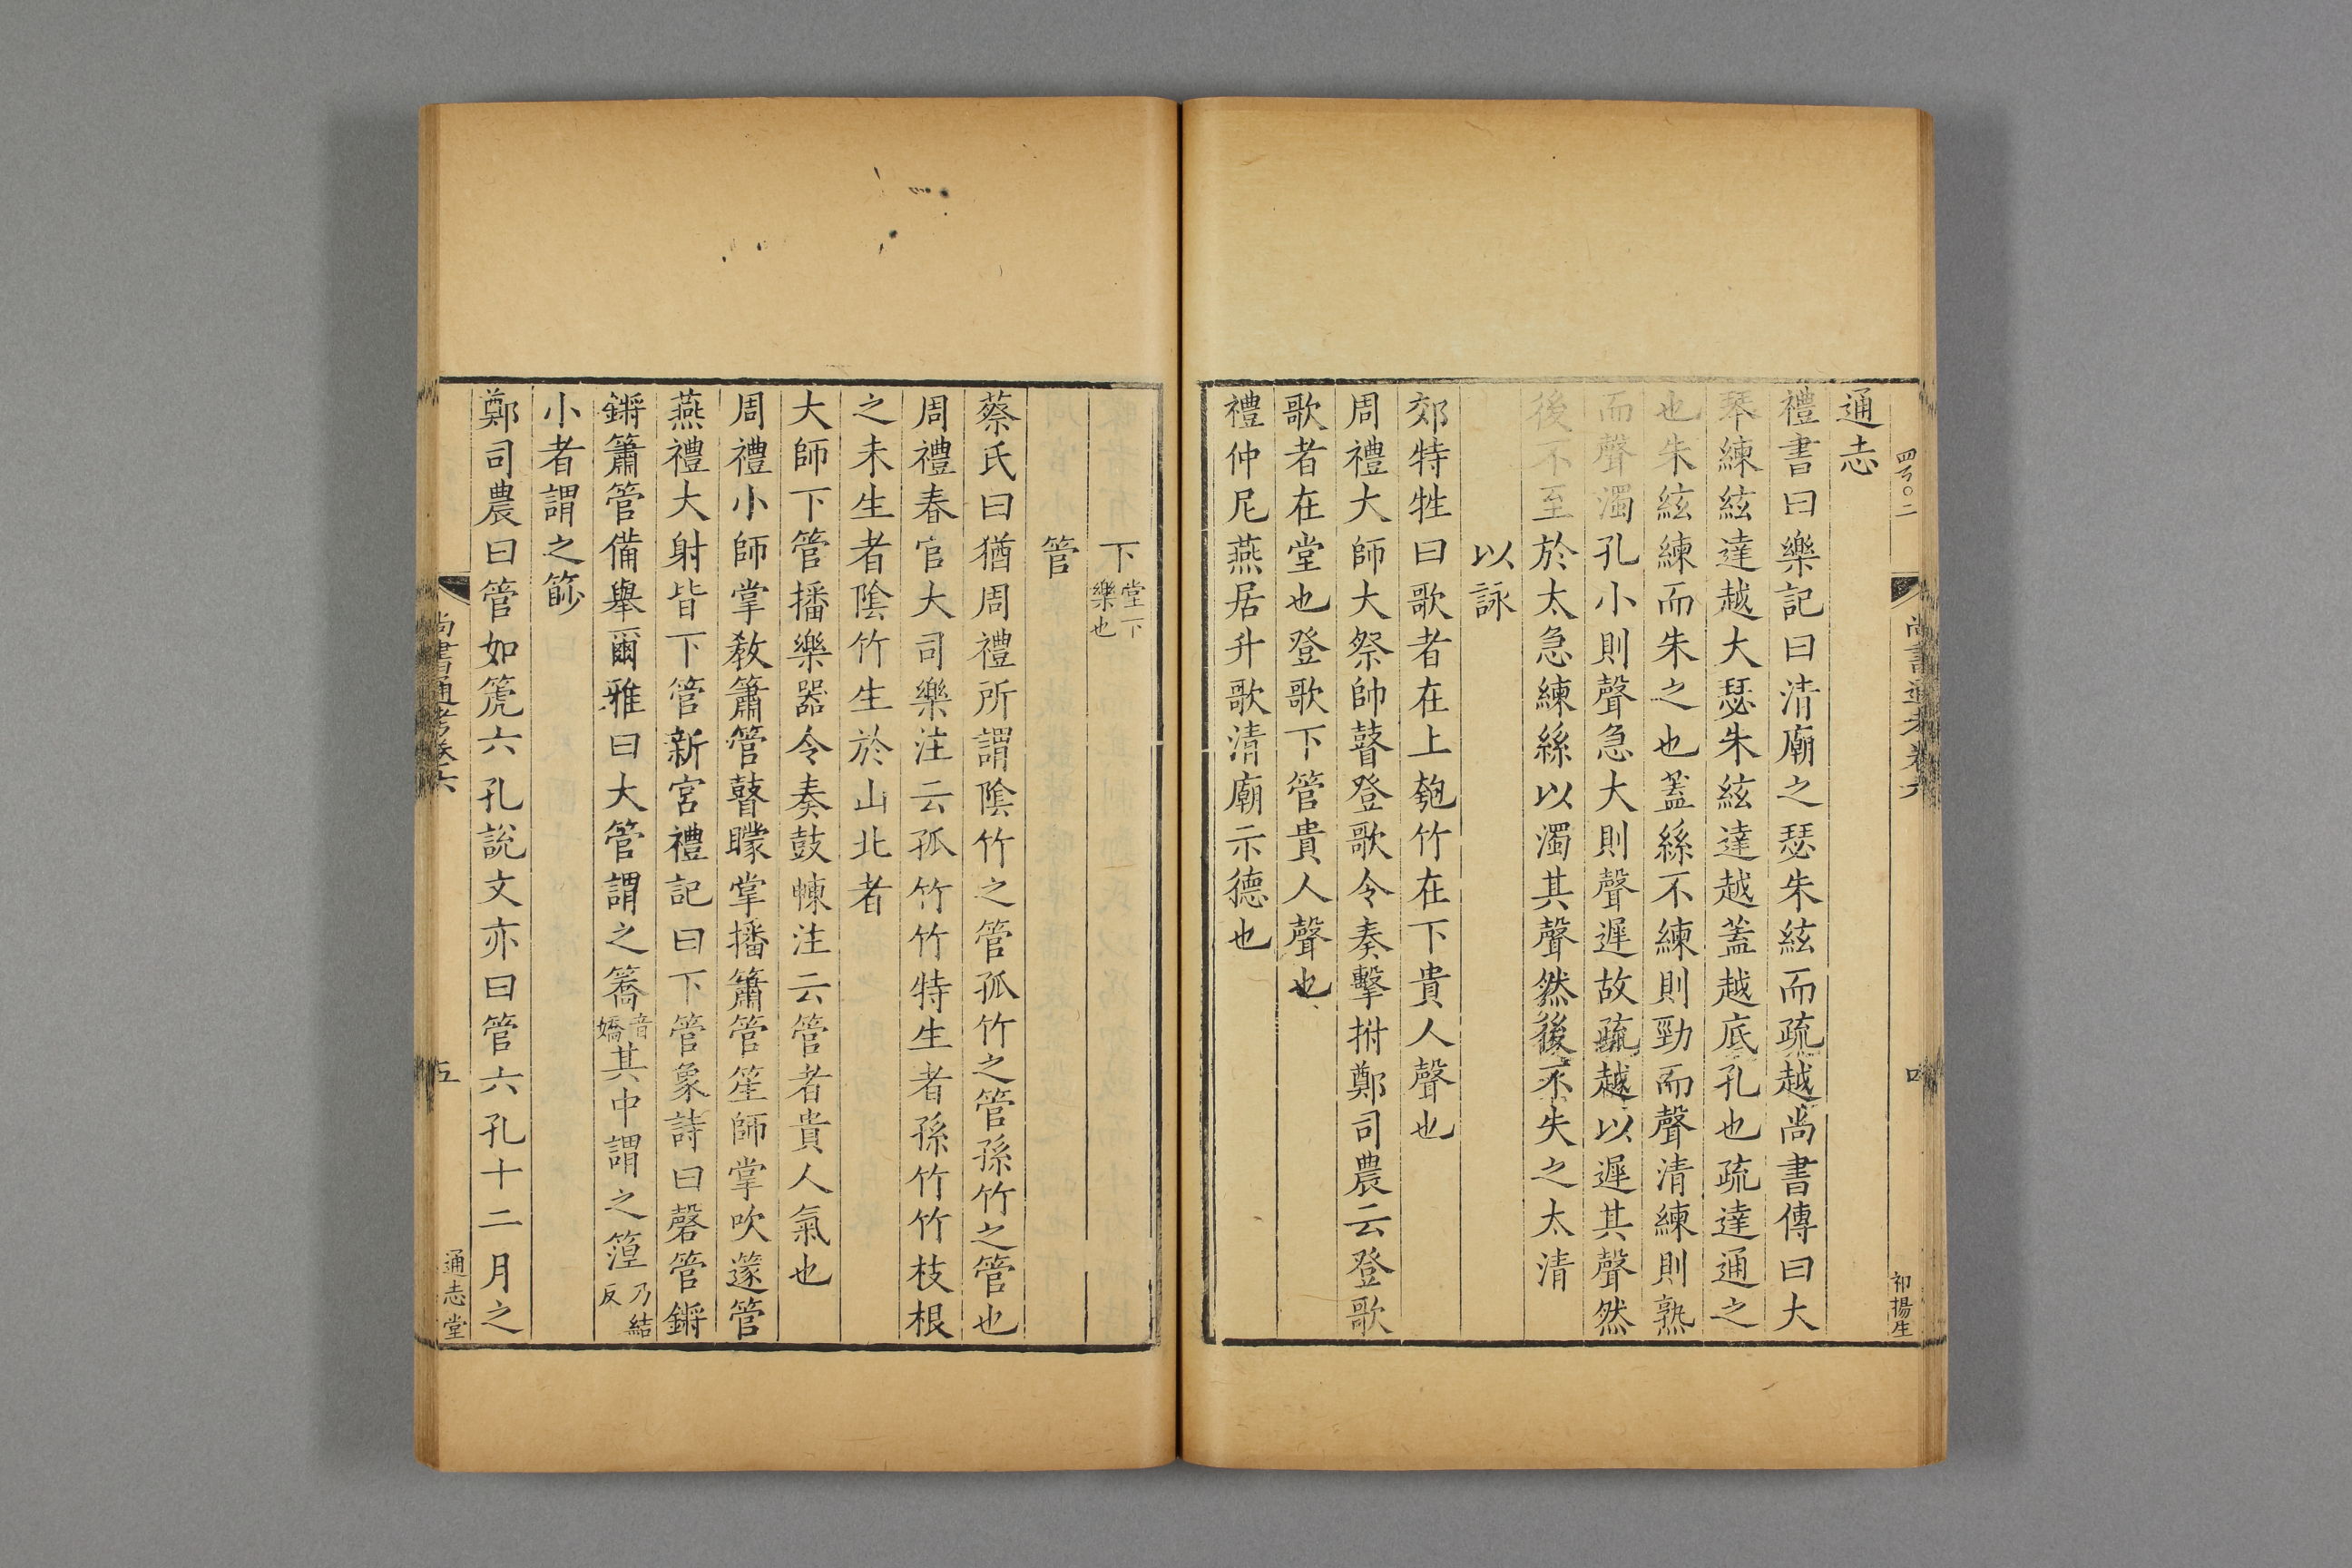 四百〇二
尚書通考卷六
祁揚生
通志
禮書曰樂記曰清廟之瑟朱絃而疏越尚書傳曰大
琴練絃達越大瑟朱絃達越蓋越底孔也疏達通之
也朱絃練而朱之也蓋絲不練則勁而聲清練則熟
而聲濁孔小則聲急大則聲遲故疏越以遲其聲然
後不至於太急練絲以濁其聲然後不失之太清
以詠
郊特牲曰歌者在上匏竹在下貴人聲也
周禮大師大祭帥瞽登歌令奏擊拊鄭司農云登歌
歌者在堂也登歌下管貴人聲也
禮仲尼燕居升歌清廟示德也
下堂下樂也
管
蔡氏曰猶周禮所謂陰竹之管孤竹之管孫竹之管也
周禮春官大司樂注云孤竹竹特生者孫竹竹枝根
之未生者陰竹生於山北者
大師下管播樂器令奏鼓𣌾注云管者貴人氣也
周禮小師掌敎簫管瞽矇掌播簫管笙師掌吹篴管
燕禮大射皆下管新宮禮記曰下管象詩曰磬管鏘
鏘簫管備舉爾雅曰大管謂之簥音嬌其中謂之篞乃結反
小者謂之篎
鄭司農曰管如篪六孔說文亦曰管六孔十二月之
尚書通考卷六
五
通志堂